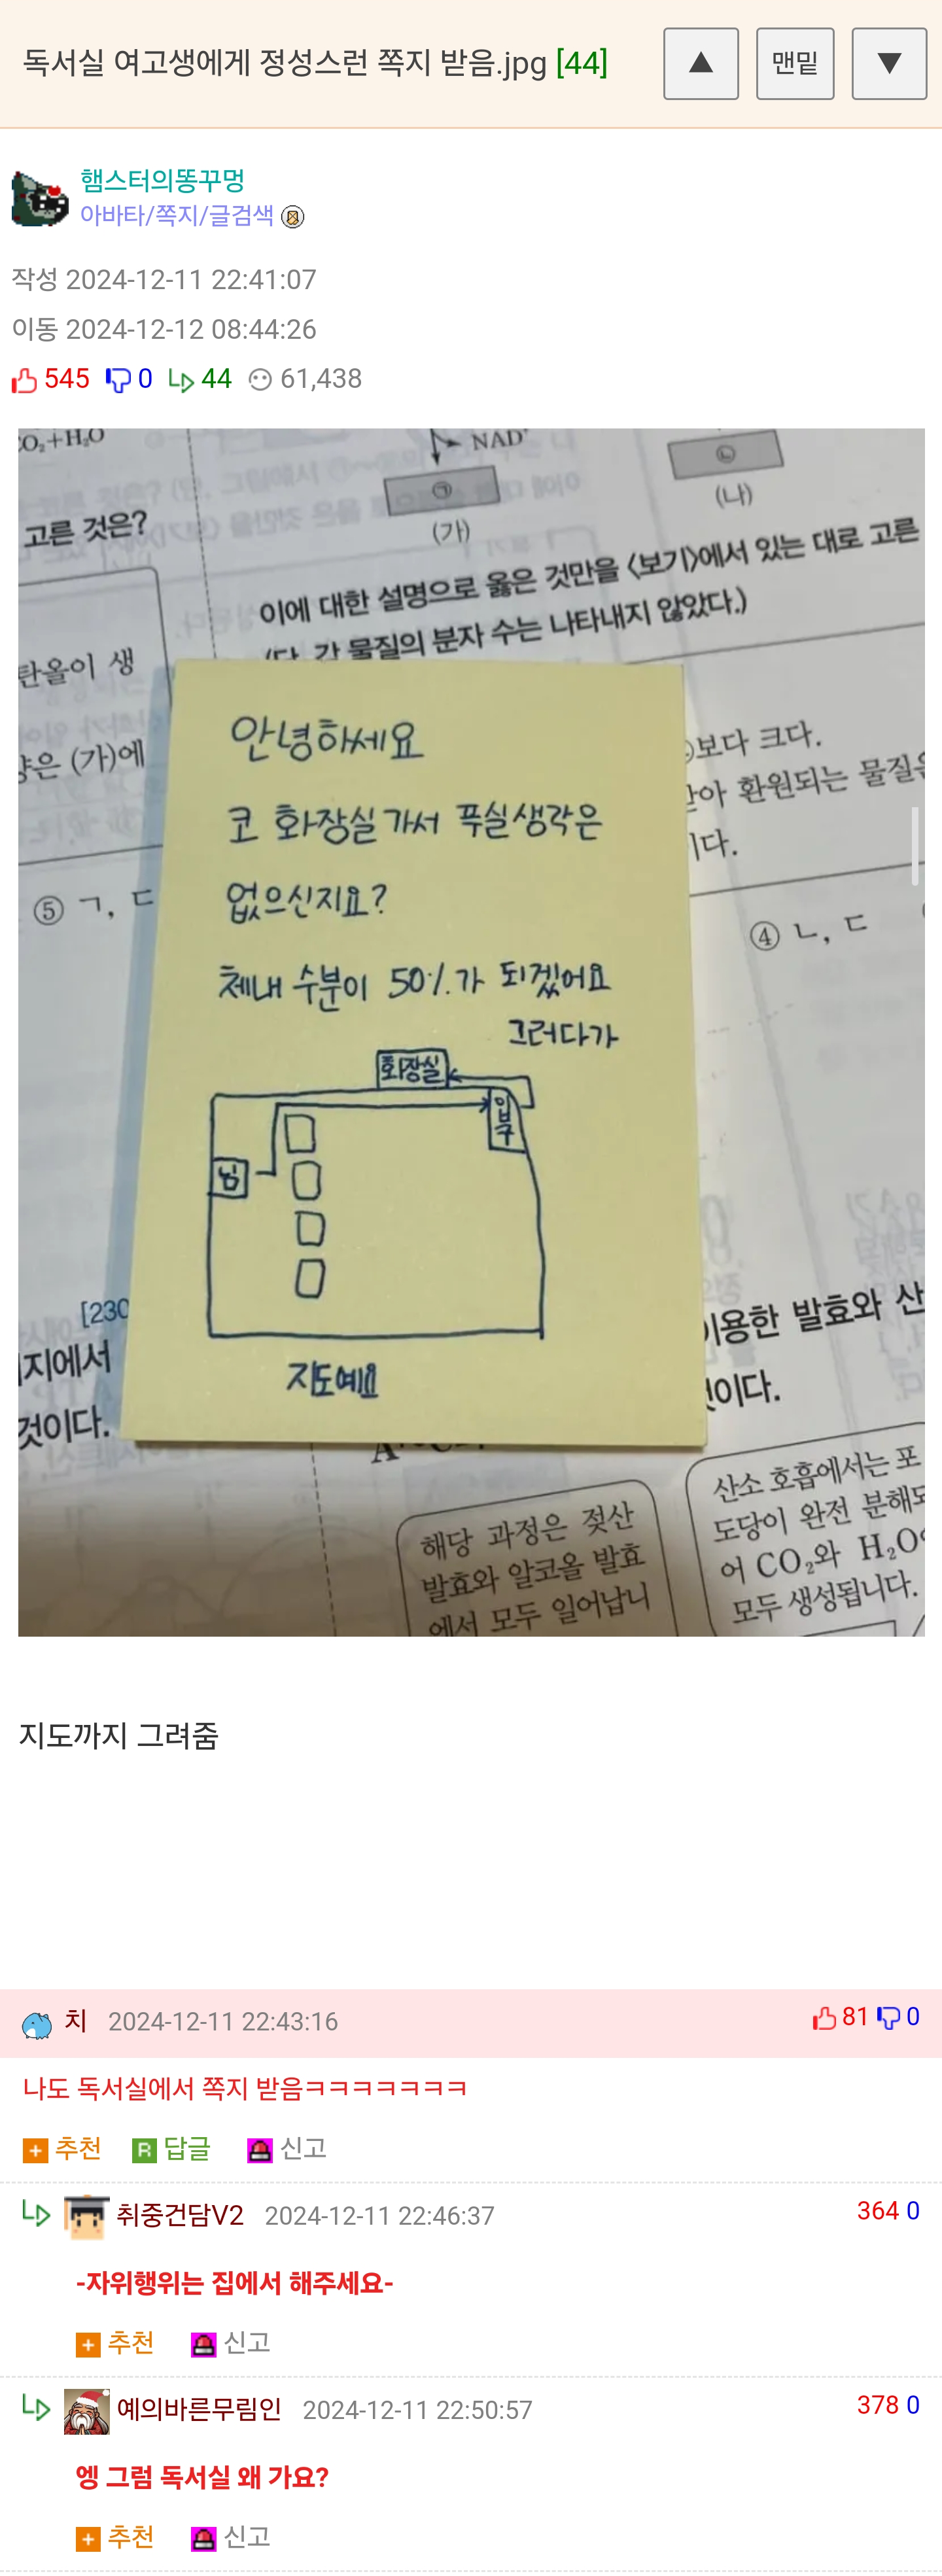 독서실 여고생에게 정성스런 쪽지 받음.jpg [44]
▲ 맨밑 ▼
햄스터의똥꾸멍
아바타/쪽지/글검색
작성 2024-12-11 22:41:07
이동 2024-12-12 08:44:26
545 0 44 61,438
CO₂+H₂O
NAD⁺
㉠
㉡
(가)
(나)
고른 것은?
이에 대한 설명으로 옳은 것만을 <보기>에서 있는 대로 고른
(단, 각 물질의 분자 수는 나타내지 않았다.)
탄올이 생
은 (가)에
보다 크다.
아 환원되는 물질은
다.
⑤ ㄱ, ㄷ
④ ㄴ, ㄷ
안녕하세요
코 화장실 가서 푹실생각은
없으신지요?
체내 수분이 50%가 되겠어요
그러다가
화장실
입구
님
지도예요
[230
지에서
것이다.
이용한 발효와 산
것이다.
해당 과정은 젖산
발효와 알코올 발효
에서 모두 일어납니
산소 호흡에서는 포
도당이 완전 분해되
어 CO₂와 H₂O
모두 생성됩니다.
지도까지 그려줌
치 2024-12-11 22:43:16 81 0
나도 독서실에서 쪽지 받음ㅋㅋㅋㅋㅋㅋㅋ
추천 R 답글 신고
취중건담V2 2024-12-11 22:46:37 364 0
-자위행위는 집에서 해주세요-
추천 신고
예의바른무림인 2024-12-11 22:50:57 378 0
엥 그럼 독서실 왜 가요?
추천 신고